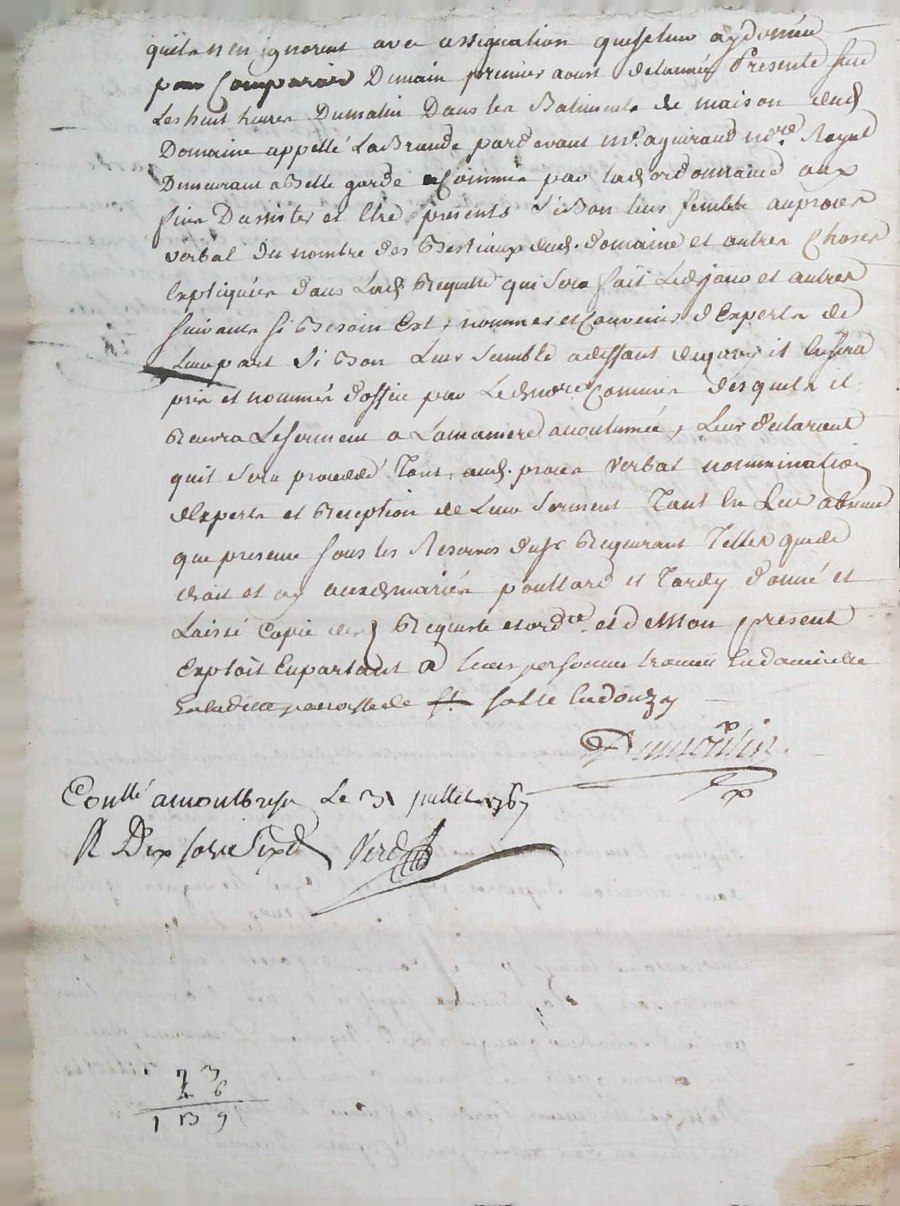 qu'ils n'en ignorent avec assignation que je leur ay donnée
pour Comparoir Demain premier aoust de lannée Presente sur
Les huit heures Dumatin Dans les Batiments de maison dud.
Domaine appellé LaBrande pardevant me. aguiraud nore. Royal
Demeurant a Belle garde Commis par lad. ordonnance aux
fins Dassister et Etre presents si Bon leur semble au proces
verbal Du nombre des Bestiaux dud. domaine et autres Choses
Expliquées dans Lad. Requette qui sera fait Led. jour et autres
suivants si Besoin Est, nommer et Convenir d'Experts de
Leur part si Bon Leur semble adeffaut dequoy il En sera
pris et nommés d'office par Led. nore. Commis desquels il
Recevra Le serment a La maniere acoutumée, Leur declarant
quil sera procedé Tant aud. proces verbal nomination
dExperts et Reception de Leur serment Tant En Leur absence
que presence sous les Reserves dud. Requerant Telles que de
droit et ay auxd. mariés poullard et Tardy donné et
Laissé Copie desd. Requette et ordce. et de Mon present
Exploit En parlant a leurs personnes trouvés En domicille
En ladite parroisse de st. Dumoulin
Contllé a Le 31 juillet 1767
R Dix sols Six d.
7 3
6
1 13 9